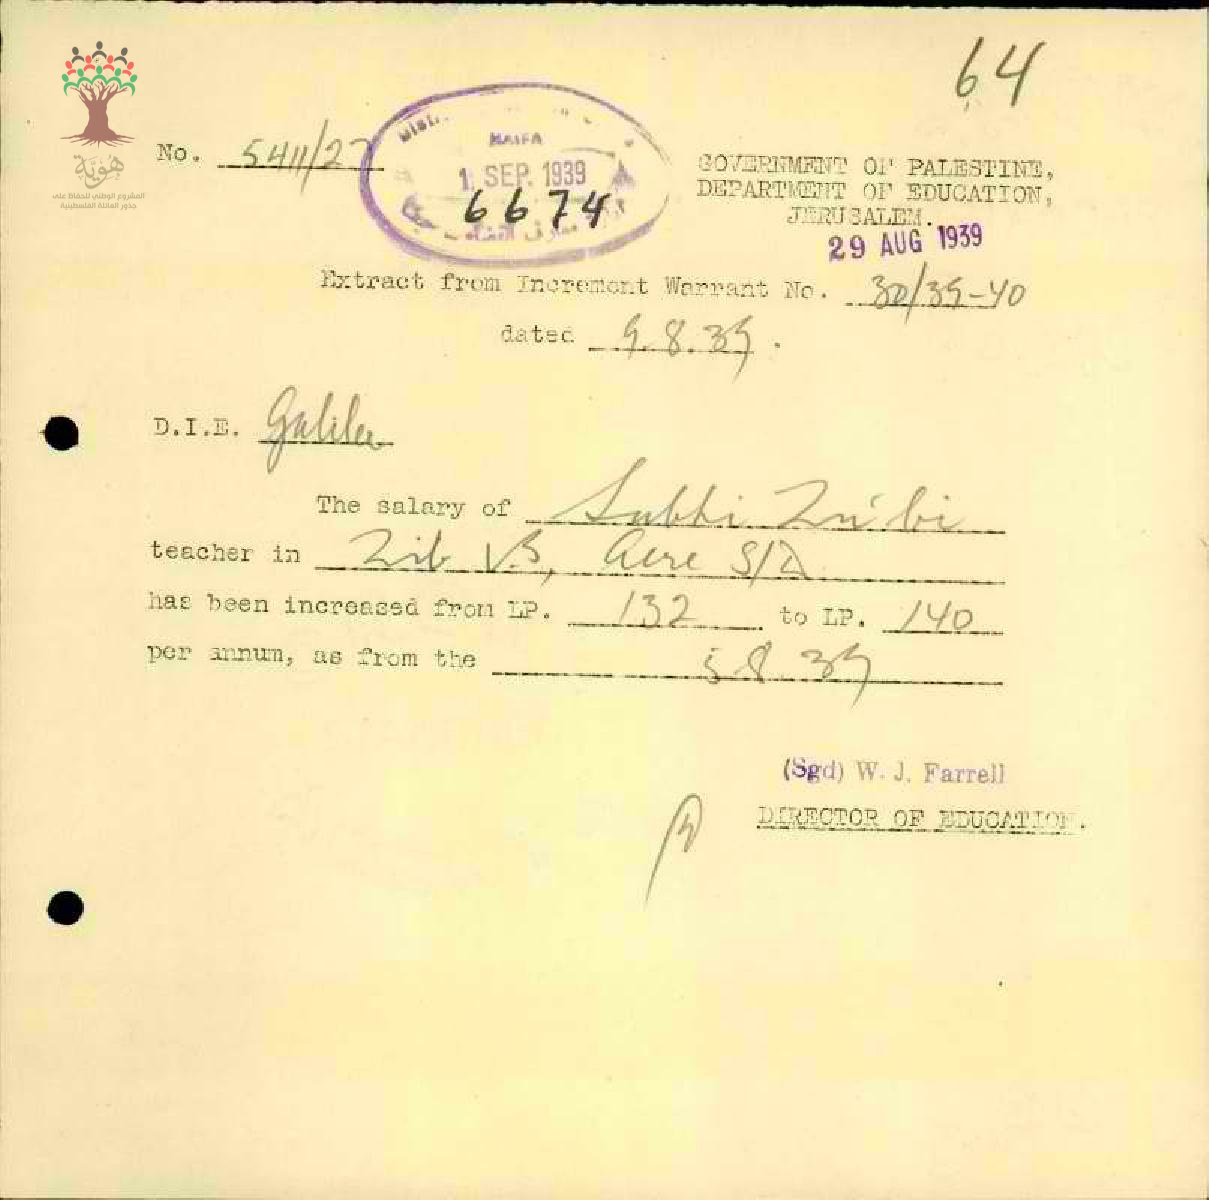 64
هُوِيَّة
المشروع الوطني للحفاظ على
جذور العائلة الفلسطينية
No. 5411/27
HAIFA
1. SEP. 1939
6674
GOVERNMENT OF PALESTINE,
DEPARTMENT OF EDUCATION,
JERUSALEM.
29 AUG 1939
Extract from Increment Warrant No. 30/39-40
dated 9.8.39.
D.I.E. Galilee
The salary of Subhi Zu'bi
teacher in Zib V.S, Acre S/D
has been increased from LP. 132 to LP. 140
per annum, as from the 5.8.39
(Sgd) W. J. Farrell
DIRECTOR OF EDUCATION.